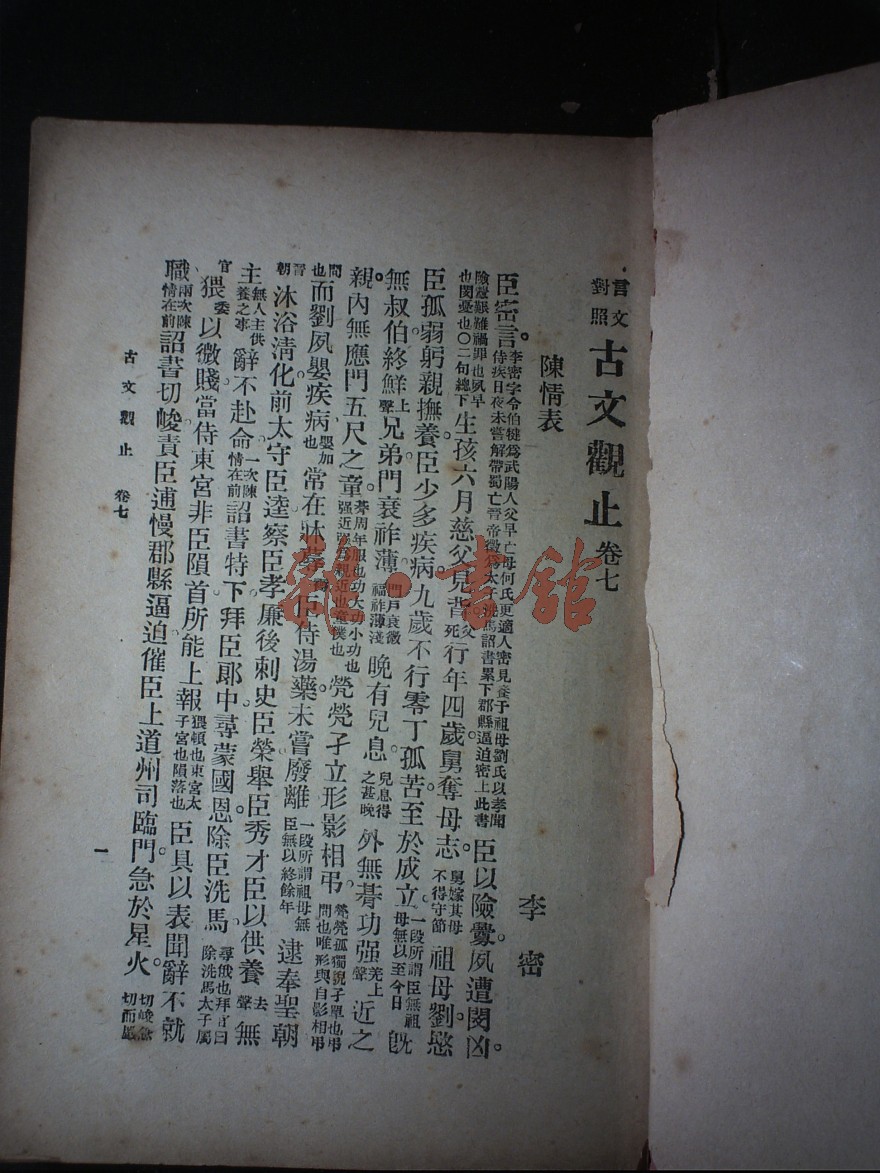 言文對照 古文觀止 卷七
陳情表 李密
臣密言。李密字令伯犍爲武陽人父早亡母何氏更適人密見養于祖母劉氏以孝聞侍疾日夜未嘗解帶蜀亡晉帝徵爲太子洗馬詔書累下郡縣逼迫密上此書臣以險釁。夙遭閔凶。
險釁艱難禍罪也夙早也閔憂也〇二句總下生孩六月慈父見背。父死行年四歲舅奪母志。舅嫁其母不得守節祖母劉愍
臣孤弱躬親撫養。臣少多疾病。九歲不行零丁孤苦。至於成立。一段所謂臣無祖母無以至今日旣
無叔伯終鮮上聲兄弟。門衰祚薄。門戶衰微福祚薄淺晚有兒息。兒息得之甚晚外無朞功强羌上聲近之
親。內無應門五尺之童。朞周年服也功大功小功也强近强爲親近也童僕也煢煢孑立形影相弔。煢煢孤獨貌孑單也弔問也唯形與自影相弔
問也而劉夙嬰疾病嬰加也常在牀蓐。臣侍湯藥未嘗廢離。一段所謂祖母無臣無以終餘年逮奉聖朝
晉朝沐浴清化前太守臣逵察臣孝廉後刺史臣榮舉臣秀才臣以供養去聲無
主無人主供養之事辭不赴命。一次陳情在前詔書特下拜臣郎中尋蒙國恩。除臣洗馬。尋俄也拜官曰除洗馬太子屬
官猥委以微賤。當侍東宮非臣隕首所能上報。猥頓也東宮太子宮也隕落也臣具以表聞辭不就
職兩次陳情在前詔書切峻責臣逋慢。郡縣逼迫催臣上道州司臨門急於星火。切峻急切而嚴
古文觀止 卷七 一